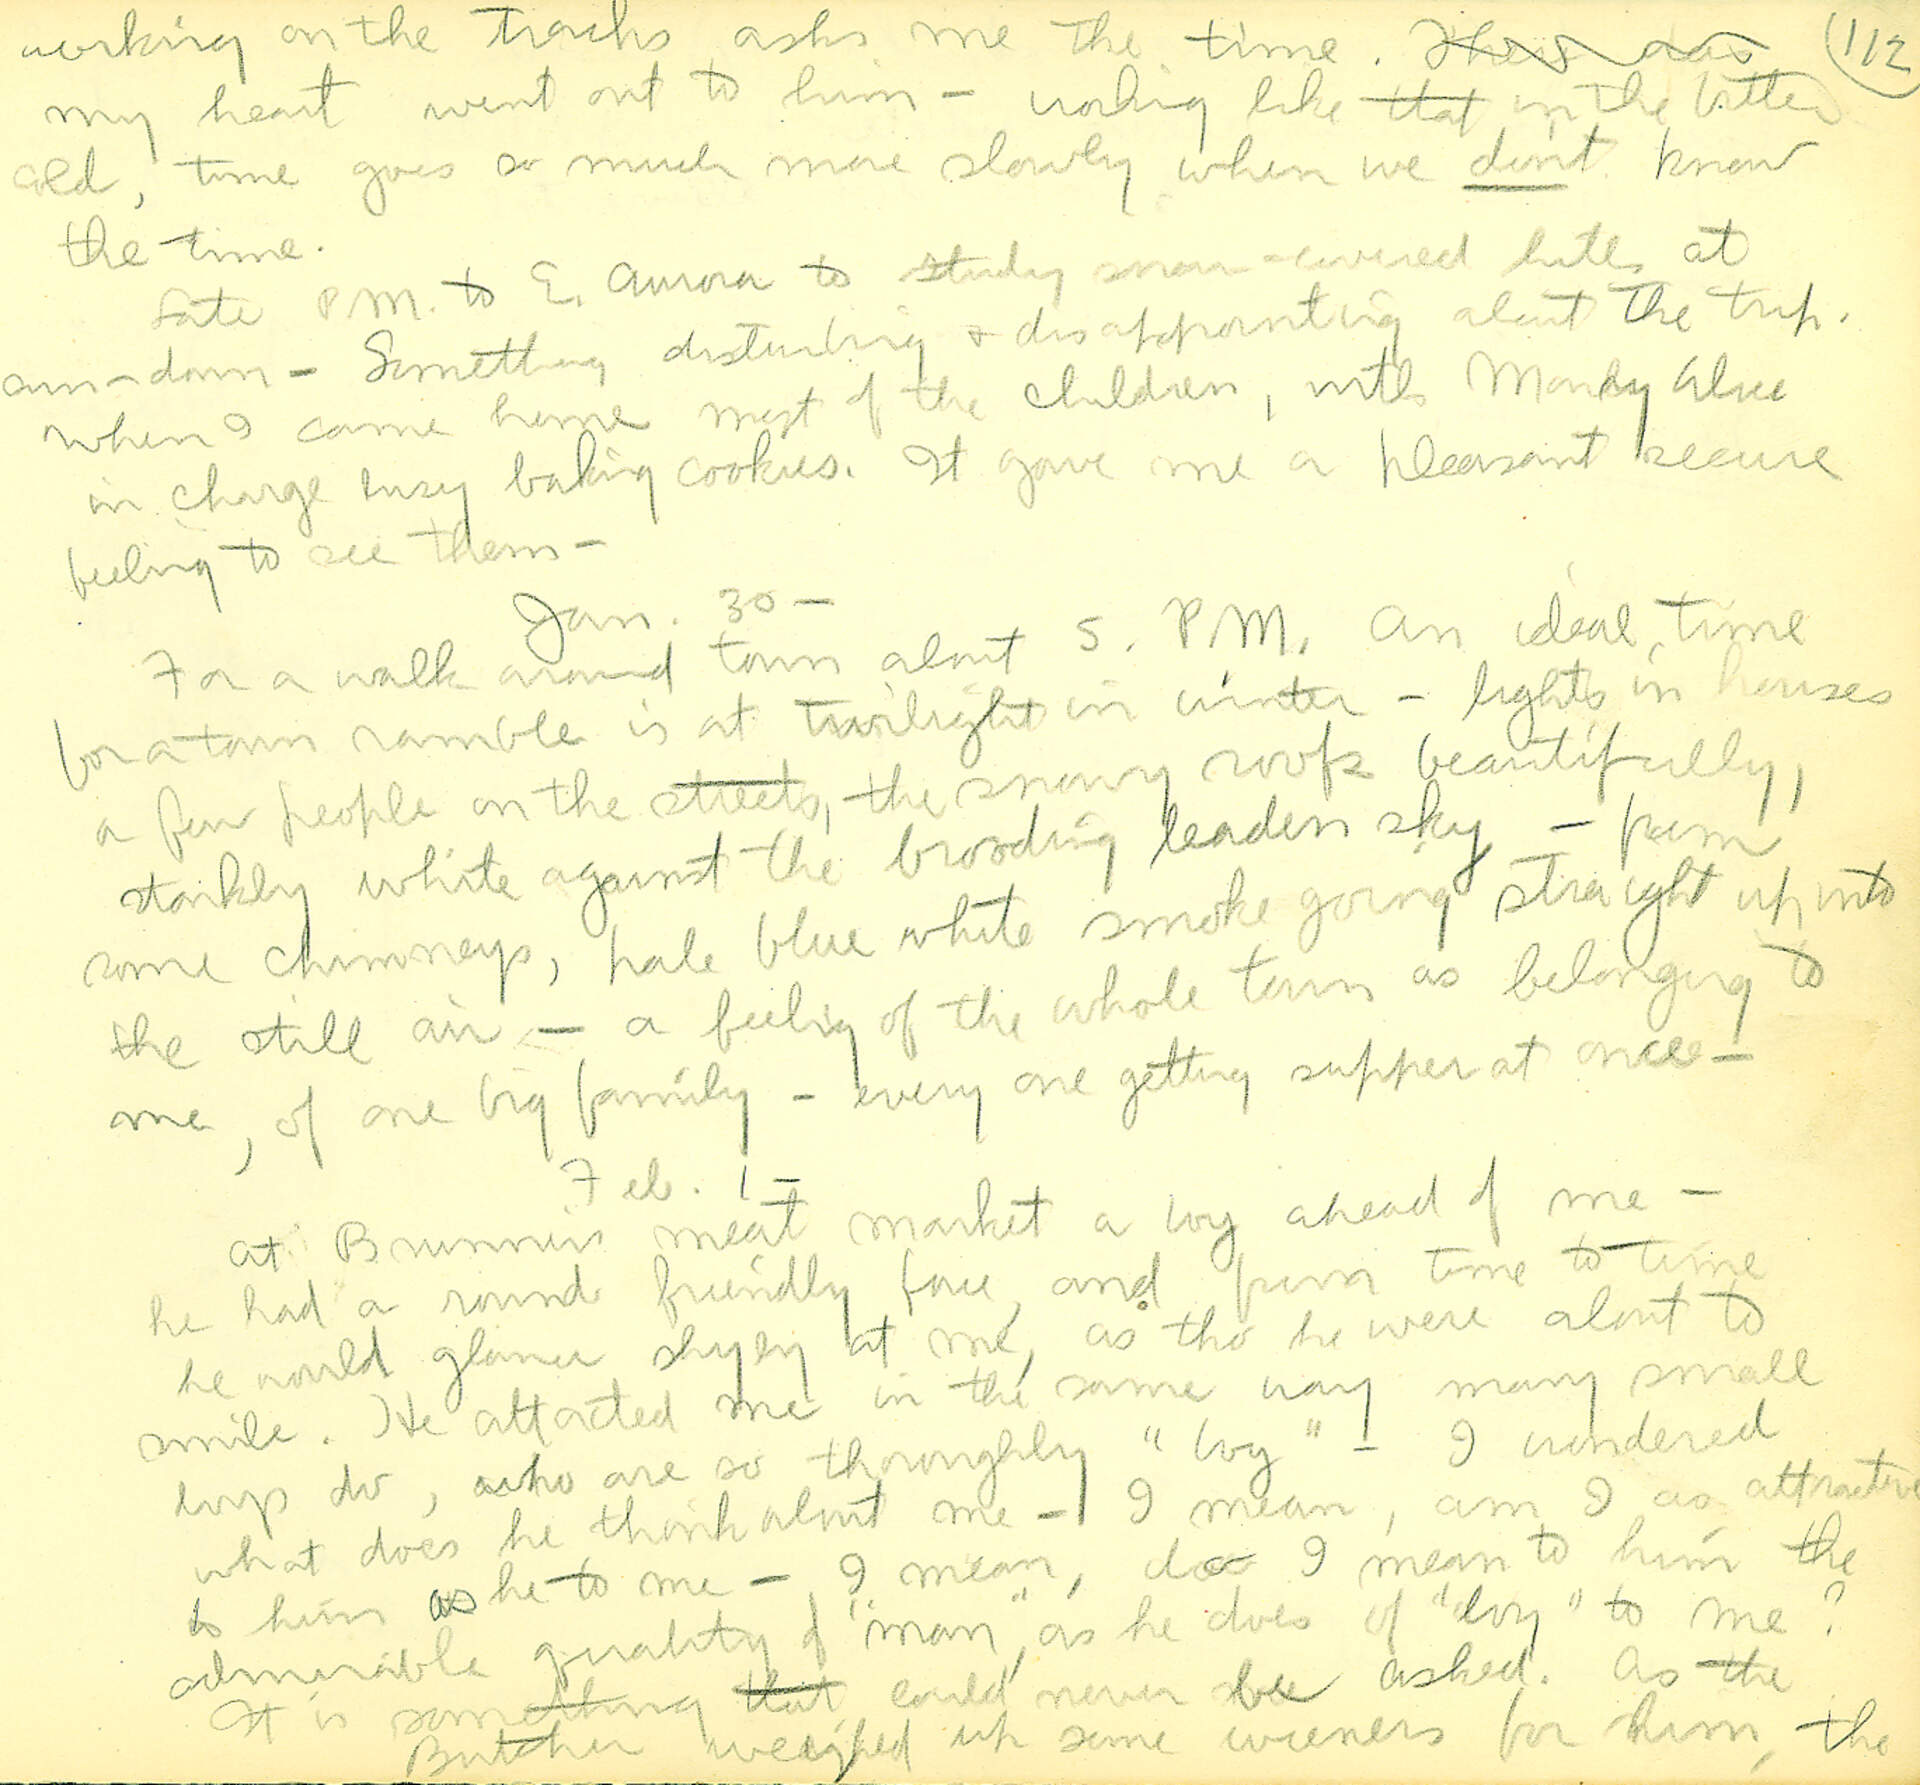 112
working on the tracks asks me the time.
my heart went out to him - working like that in the bitter
cold, time goes so much more slowly when we don't know
the time.
Late P.M. to E. Aurora to study snow-covered hills at
sun-down - Something disturbing + disappointing about the trip.
When I came home most of the children, with Mary Alice
in charge busy baking cookies. It gave me a pleasant secure
feeling to see them -
Jan. 30 -
For a walk around town about 5. P.M. An ideal time
for a town ramble is at twilight in winter - lights in houses
a few people on the streets, the snowy roofs beautifully,
starkly white against the brooding leaden sky - from
some chimneys, pale blue white smoke going straight up into
the still air - a feeling of the whole town as belonging to
me, of one big family - every one getting supper at once -
Feb. 1 -
At Brunner's meat market a boy ahead of me -
he had a round friendly face, and from time to time
he would glance shyly at me, as tho he were about to
smile. He attracted me in the same way many small
boys do, who are so thoroughly "boy" - I wondered
what does he think about me - I mean, am I as attractive
to him as he to me - I mean, do I mean to him the
admirable quality of "man", as he does of "boy" to me?
It is something that could never be asked. As the
Butcher weighed up some wieners for him, the